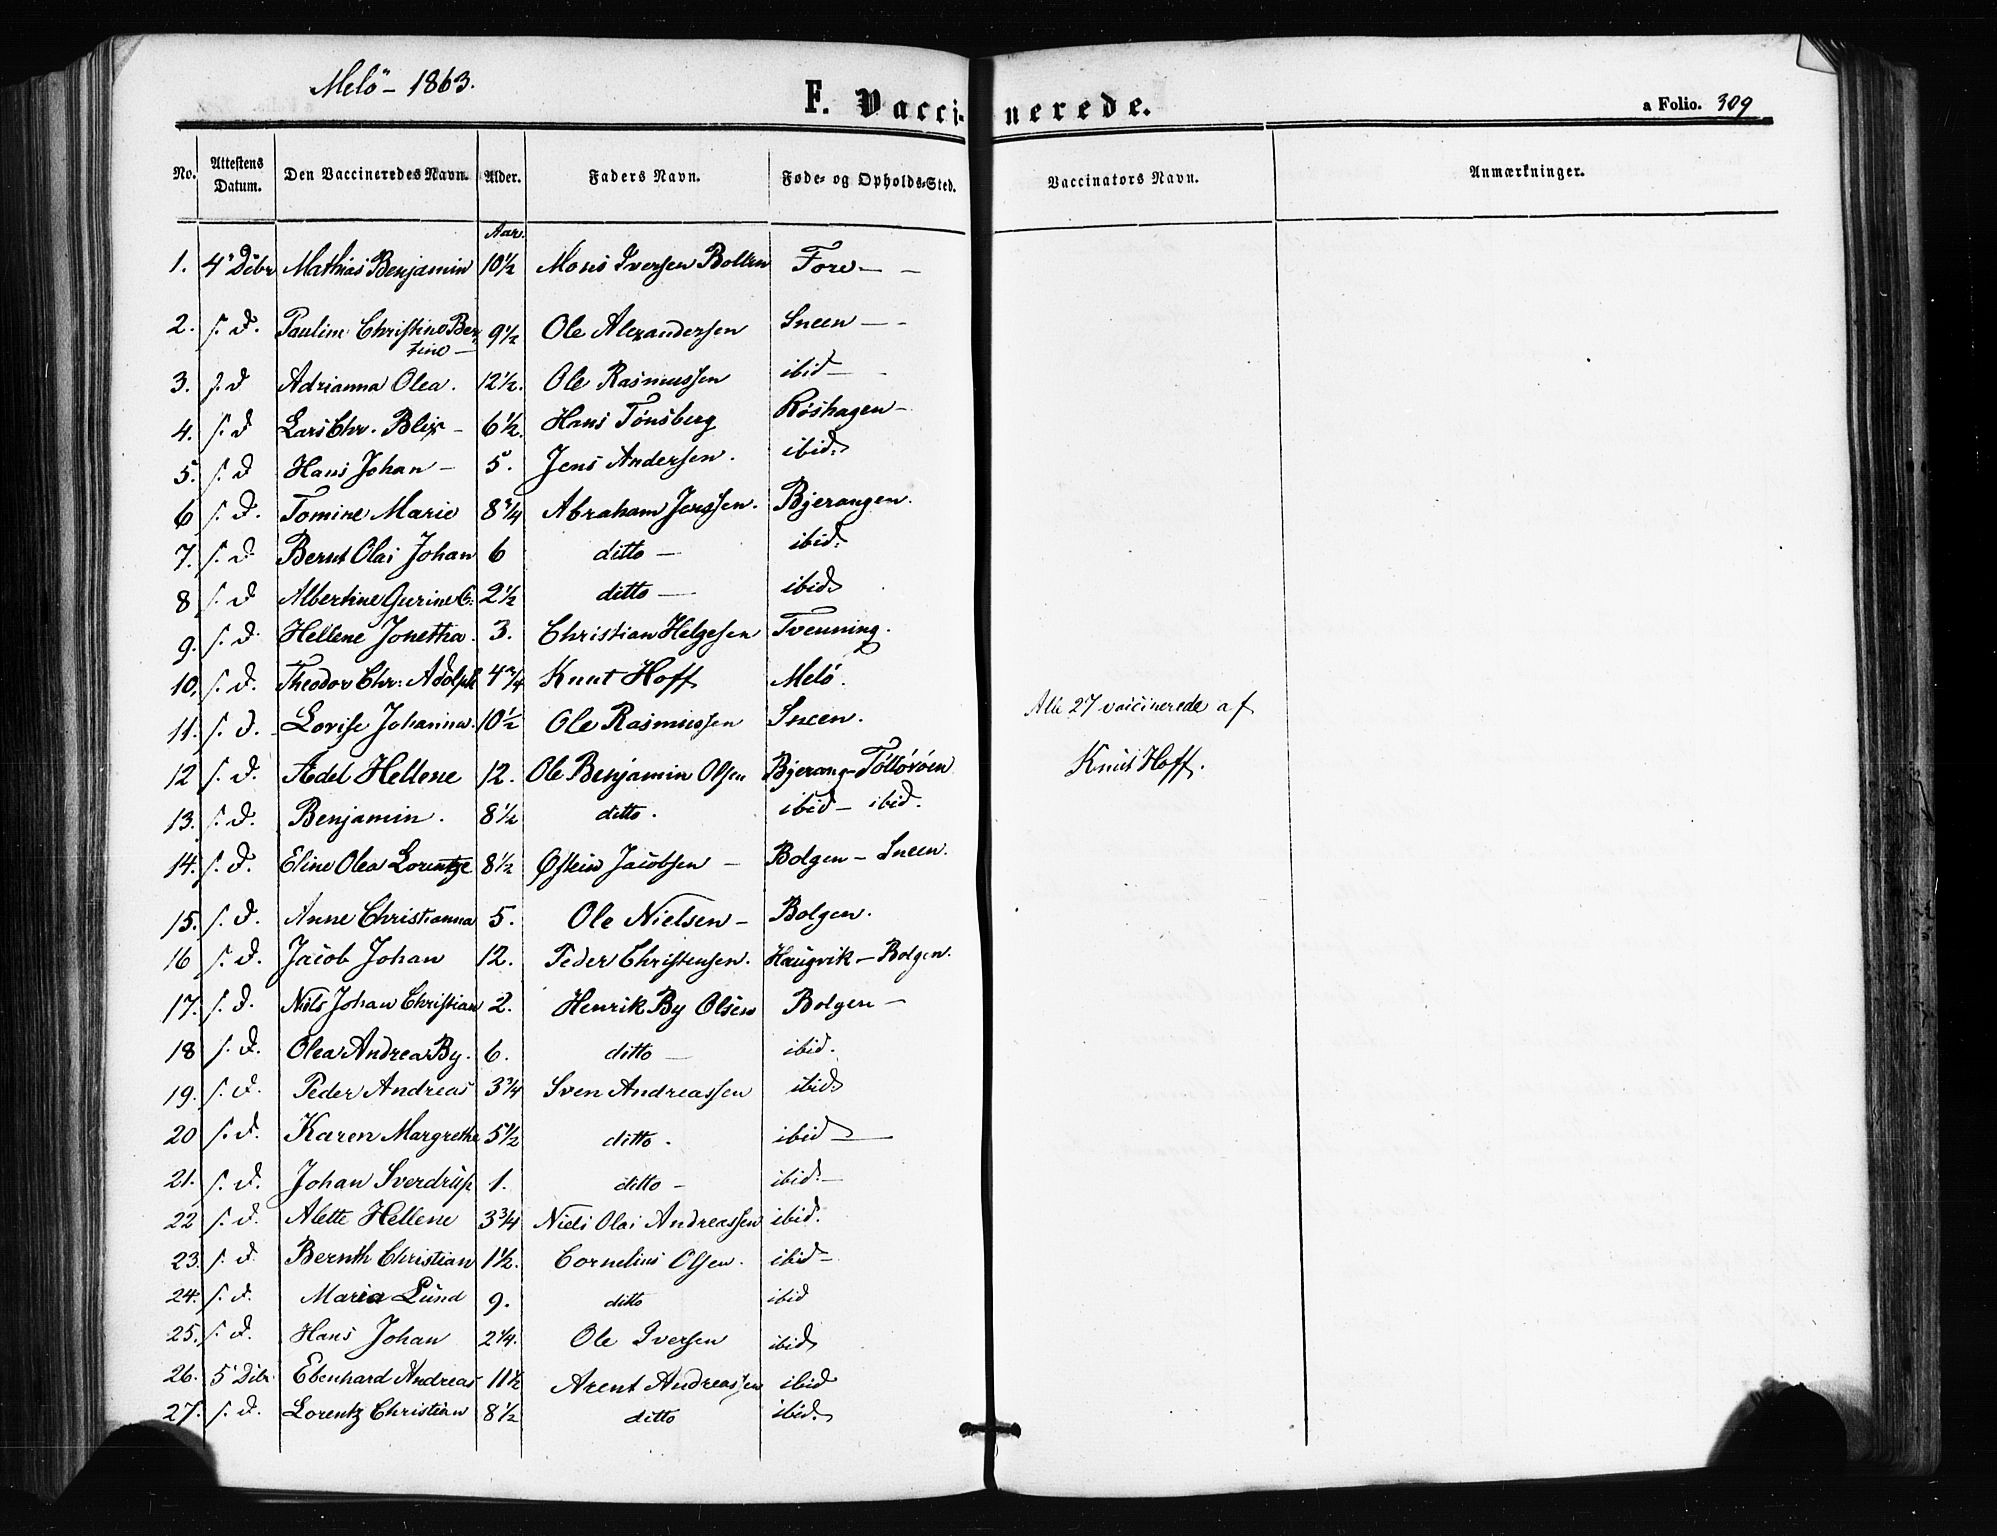 Melö - 1863.
F. Vaccinerede.
a Folio. 309
No. Attestens Datum. Den Vaccineredes Navn. Alder. Faders Navn. Føde- og Opholds-Sted. Vaccinators Navn. Anmærkninger.
Aar.
1. 4' Dcbr Mathias Benjamin 10½ Mons Iversen Bolten Fore - -
2. s. d. Pauline Christine Ber- 9½ Ole Alexandersen Sneen - -
tine -
3. s. d Adrianna Olea. 12½. Ole Rasmussen ibid -
4. s. d Lars Chr. Blix - 6½. Hans Tønsberg Røshagen -
5. s. d Hans Johan - 5. Jens Andersen. ibid.
6 s. d. Tomine Marie 8¾ Abraham Jenssen. Bjerangen.
7. s. d Bernt Olai Johan 6 ditto - ibid.
8 s. d Albertine Gurine C. 2½ ditto - ibid.
9. s. d. Hellene Jonetha. 3. Christian Helgesen Tvenning.
10. s. d. Theodor Chr. Adolph 4¾ Knut Hoff Melö.
11. s. d. Lovise Johanna. 10½ Ole Rasmussen Sneen.
Alle 27 vaccinerede af
12 s. d. Adel Hellene 12. Ole Benjamin Olsen Bjerang - Töllöröen
Knut Hoff.
13. s. d. Benjamin. 8½ ditto. ibid - ibid.
14. s. d. Eline Olea Lorentze 8½ Østein Jacobsen - Bolgen - Sneen.
15. s. d. Anne Christianna 5. Ole Nielsen - Bolgen.
16 s. d. Jacob Johan 12. Peder Christensen. Haugvik - Bolgen.
17. s. d. Niels Johan Christian 2. Henrik By Olsen Bolgen -
18 s. d. Olea Andrea By. 6. ditto - ibid.
19. s. d. Peder Andreas 3¾ Sven Andreassen ibid.
20 s. d. Karen Margrethe 5½ ditto. ibid -
21. s. d. Johan Sverdrup 1. ditto - ibid. -
22 s. d. Alette Hellene 3¾ Niels Olai Andreassen ibid.
23. s. d. Bernth Christian 1½. Cornelius Olsen. ibid -
24. s. d. Maria Lund 9. ditto ibid
25. s. d. Hans Johan 2¼. Ole Iversen ibid
26. 5' Dcbr Ebenhard Andreas 11½ Arent Andreassen ibid
27. s. d. Lorentz Christian 8½ ditto ibid.